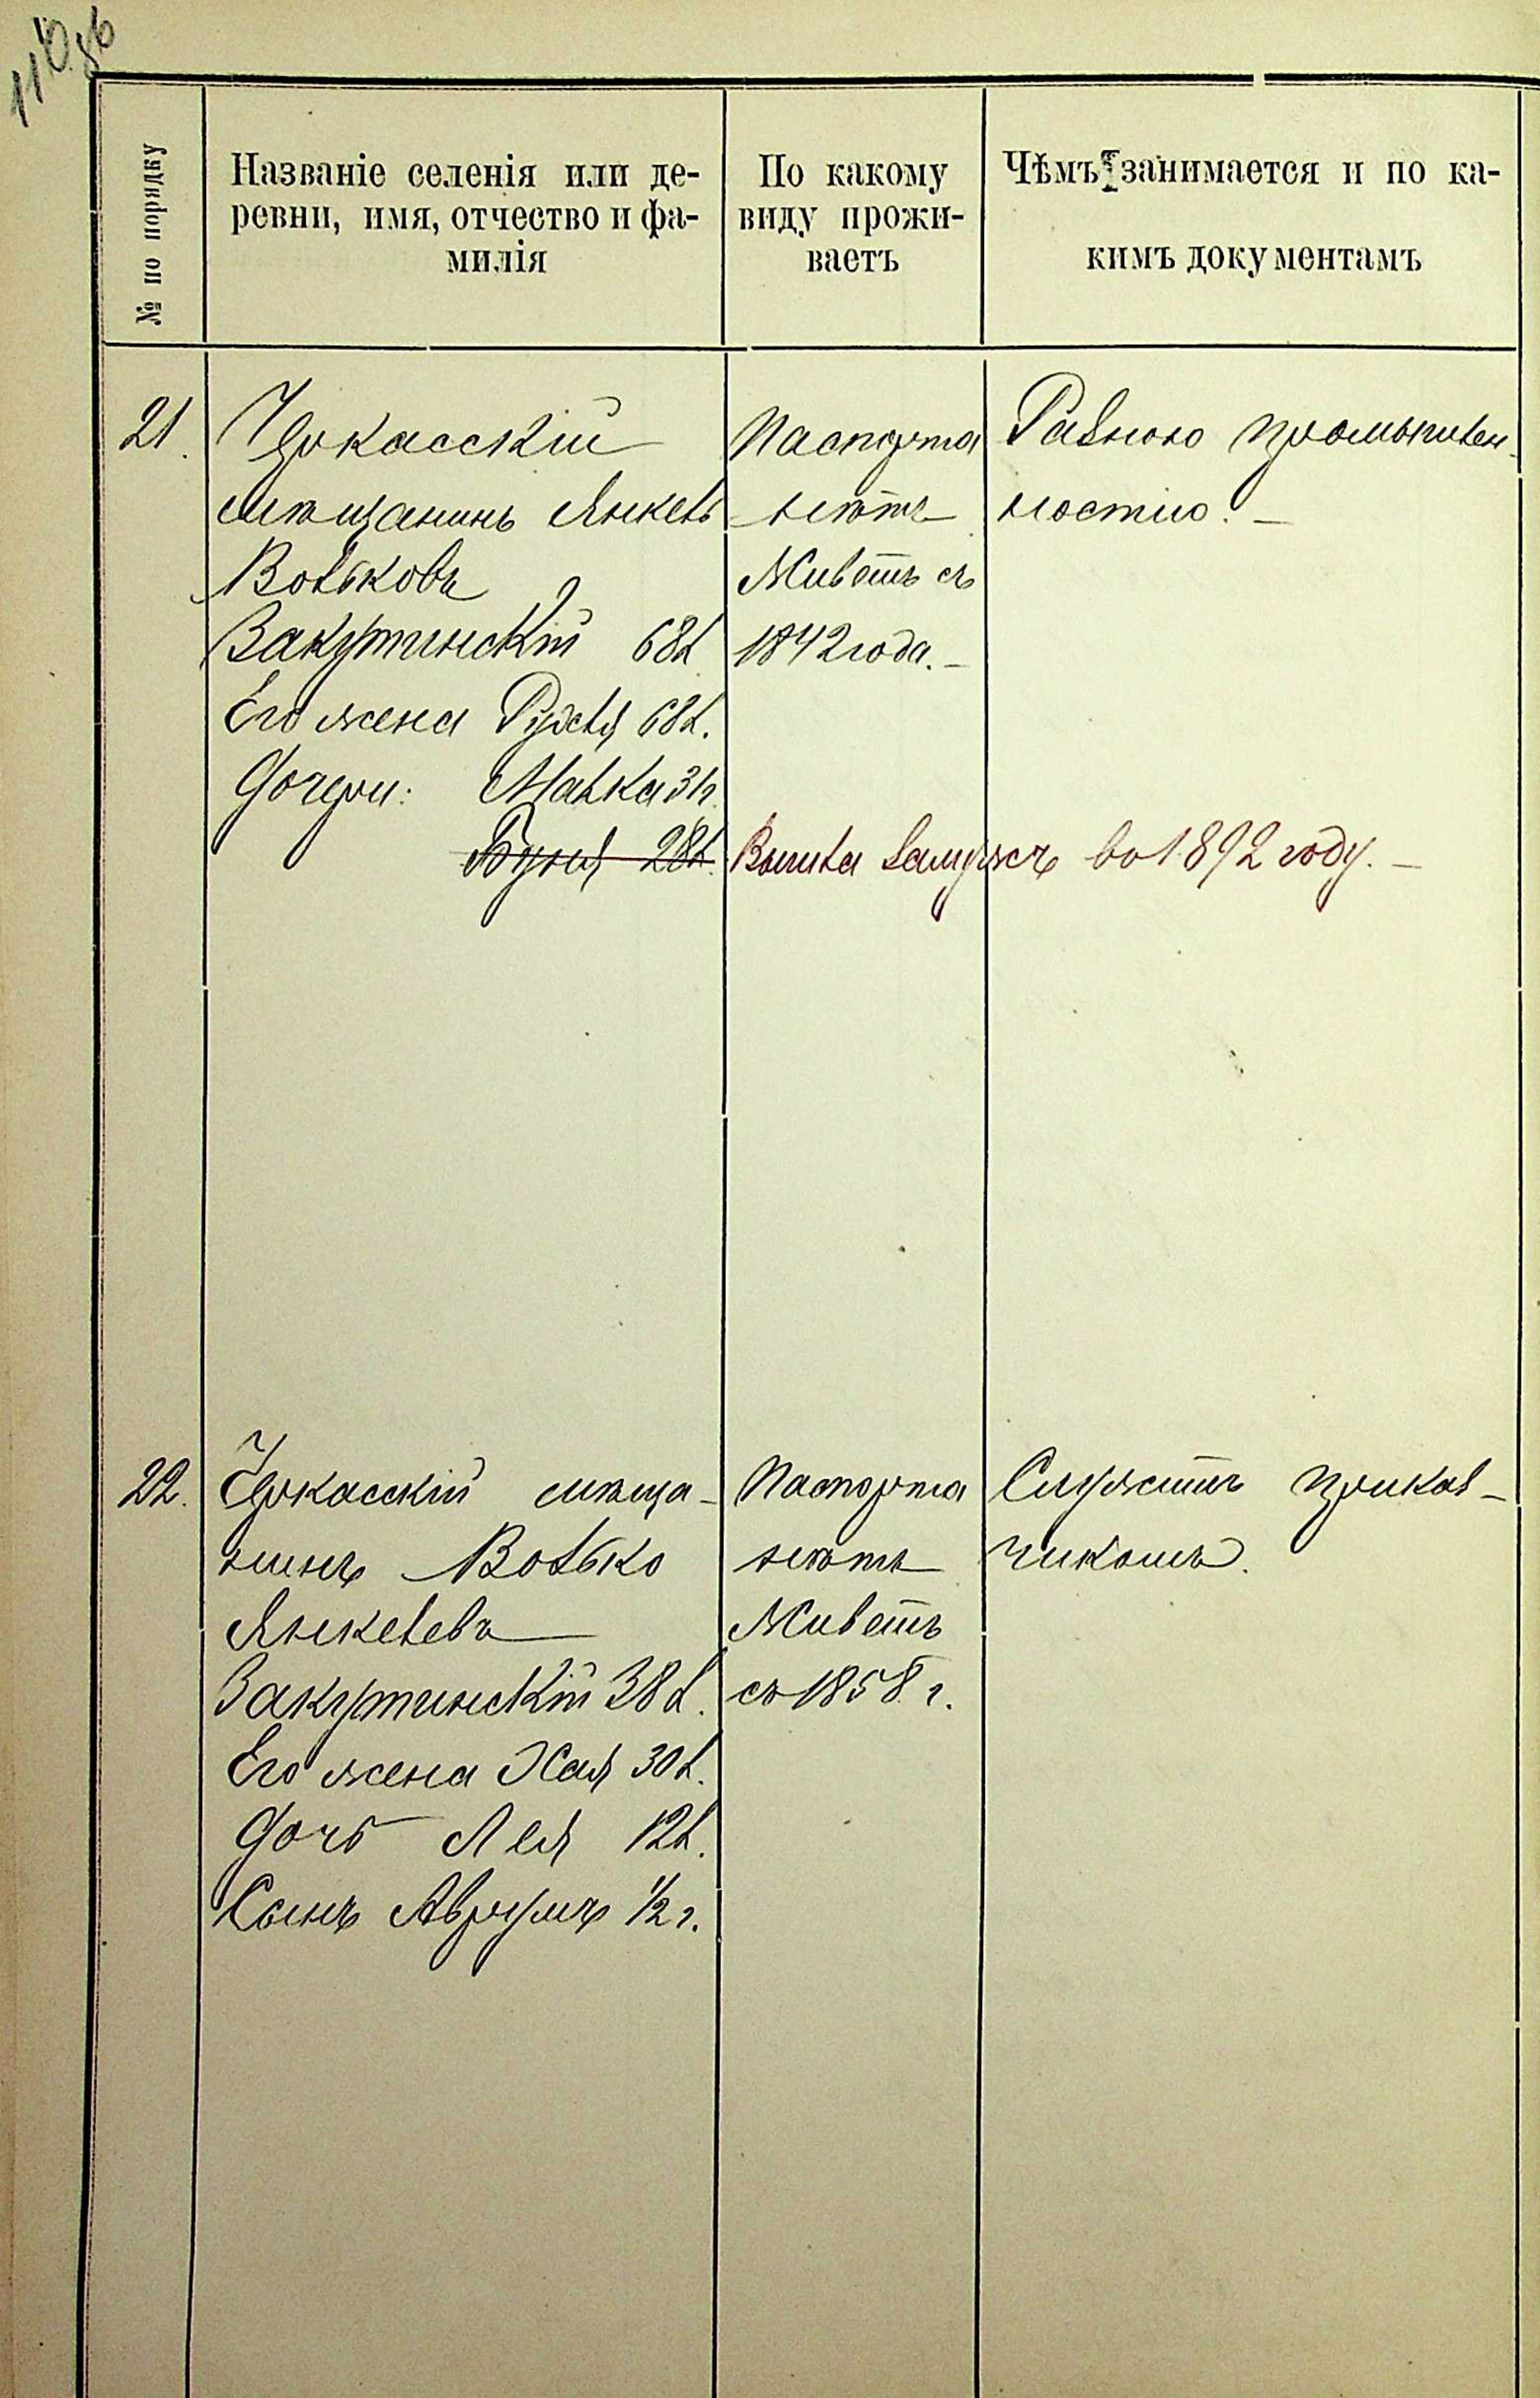 № по порядку
Названіе селенія или де-
ревни, имя, отчество и фа-
милія
По какому
виду прожи-
ваетъ
Чѣмъ занимается и по ка-
кимъ документамъ
21.
Черкасскій
мѣщанинъ Янкель
Вольковъ
Закутинскій 68 л.
Его жена Рухля 68 л.
Дочери: Малка 31 г.
Буня 28 л.
Паспорта
нѣтъ
Живетъ съ
1842 года. –
Вышла замужъ въ 1892 году. –
Разною промышлен-
ностію. –
22.
Черкасскій мѣща-
нинъ Волько
Янкелевъ
Закутинскій 38 л.
Его жена Хая 30 л.
Дочь Лея 12 л.
Сынъ Аврумъ ½ г.
Паспорта
нѣтъ
Живетъ
съ 1858 г.
Служитъ приказ-
чикомъ.